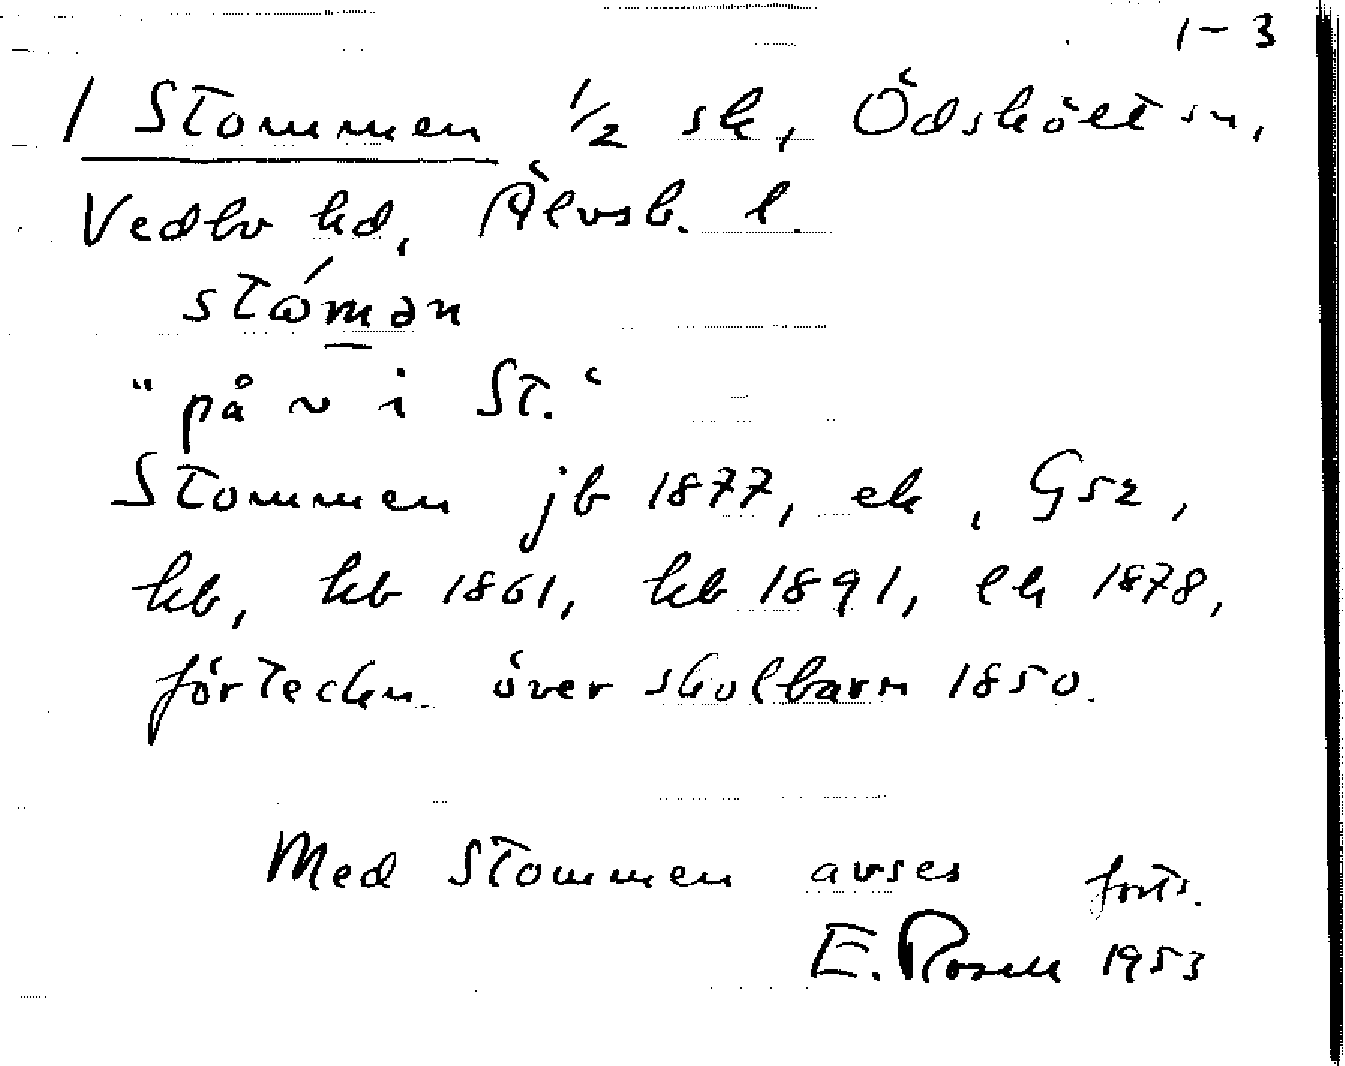 1-3
1 Stommen 1/2 sk, Ödskölt sn,
Vedbo hd, Älvsb. l.
stómən
"på ~ i St."
Stommen jb 1877, ek, G52,
hb, kb 1861, kb 1891, lk 1878,
förteckn. över skolbarn 1850.
Med Stommen avses forts.
E. Rosell 1953